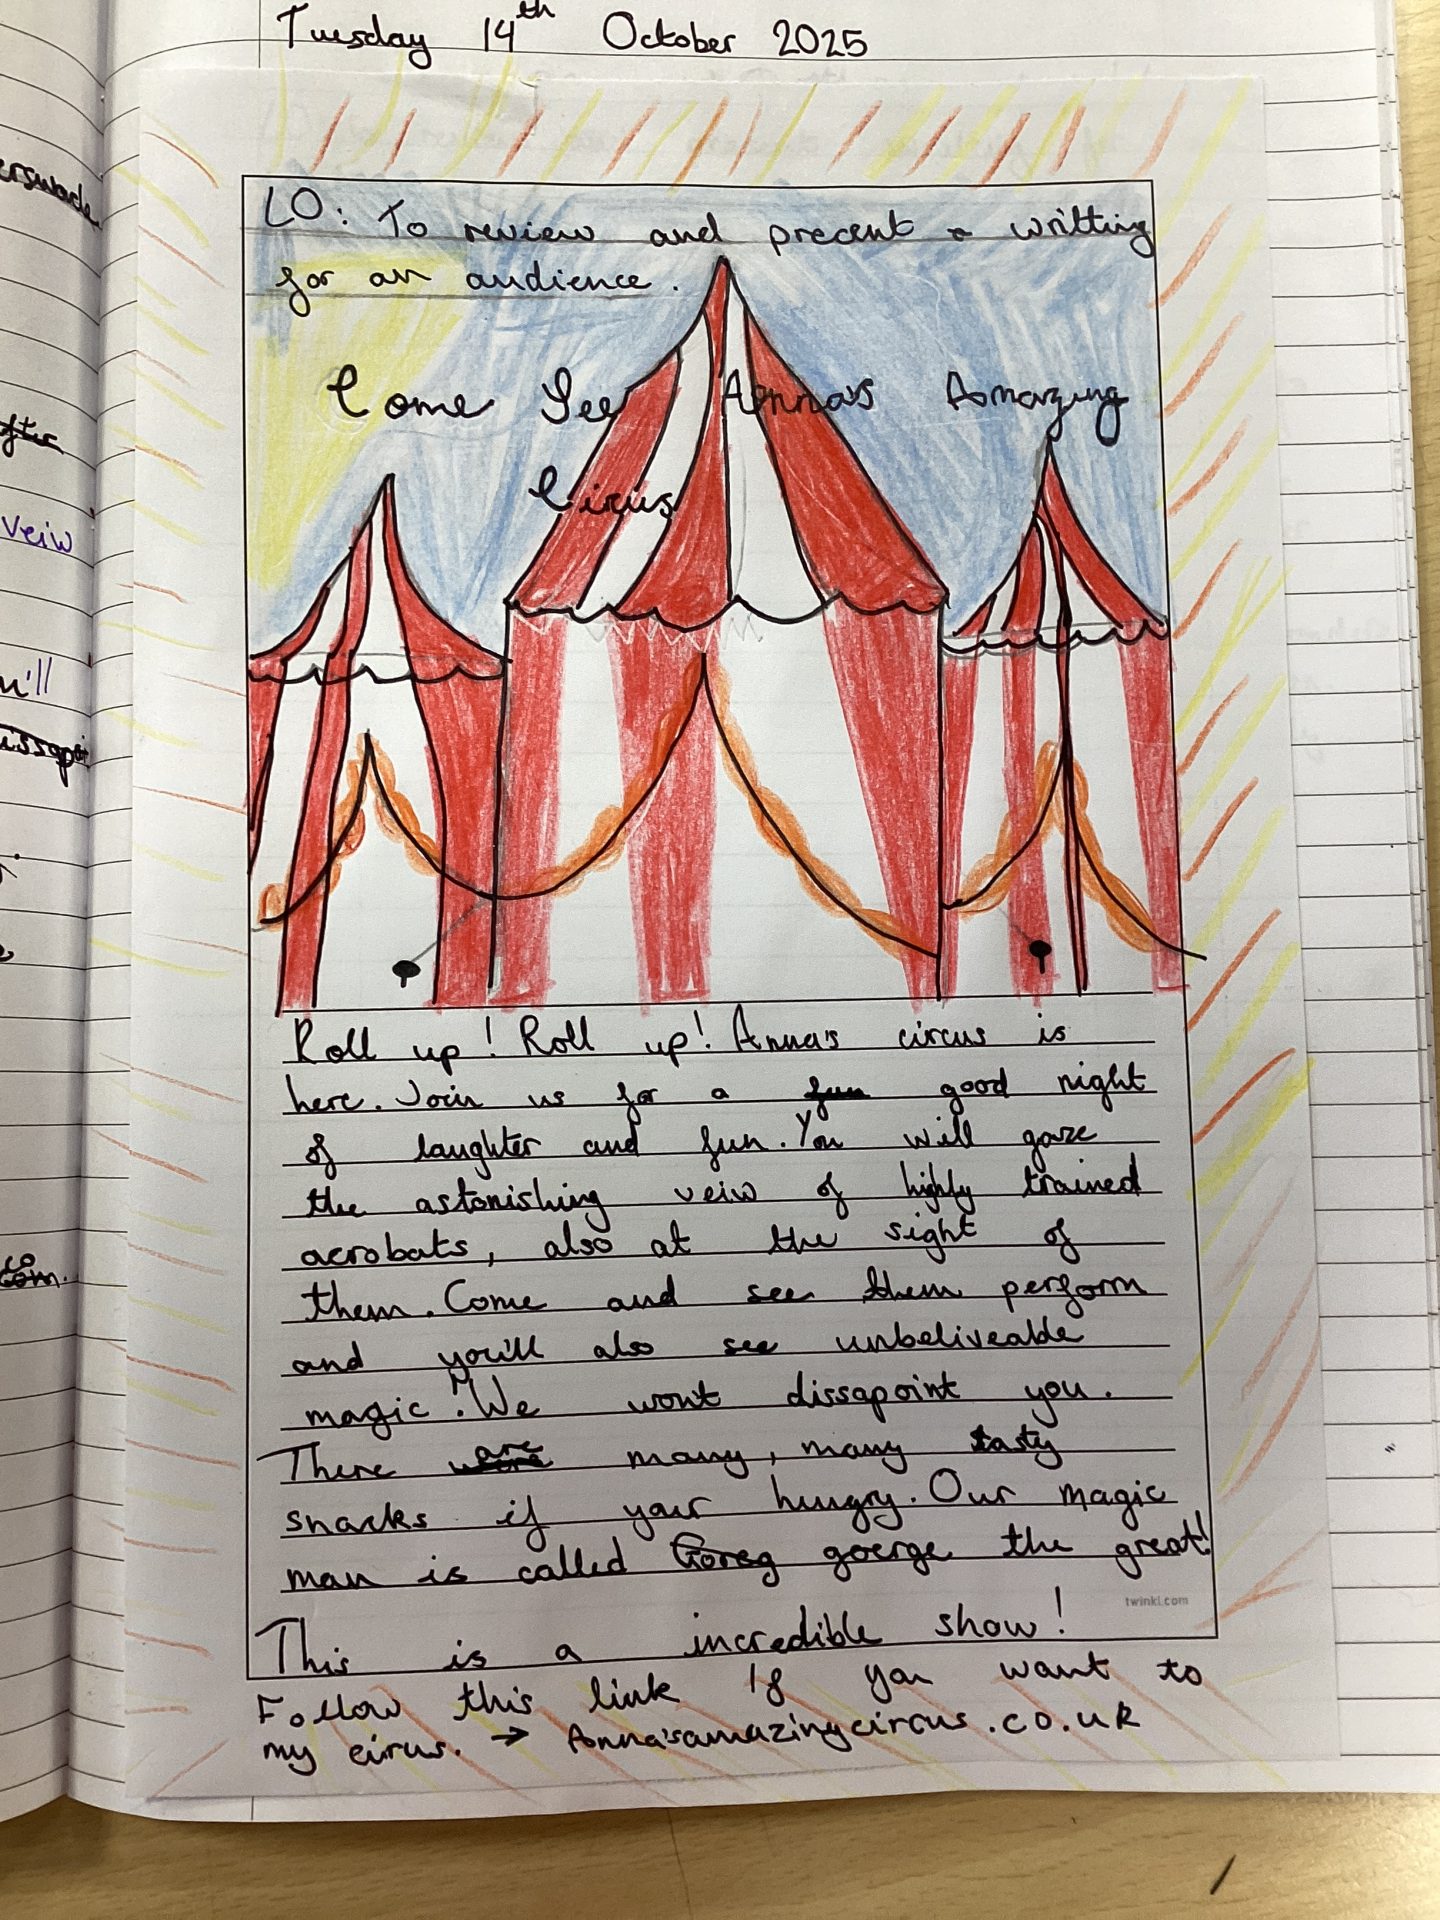 Tuesday 14th October 2025
LO: To review and precent a writting
for an audience.
Come See Anna's Amazing
Circus
Roll up! Roll up! Anna's circus is
here. Join us for a fun good night
of laughter and fun. You will gaze
the astonishing veiw of highly trained
acrobats, also at the sight of
them. Come and see them perform
and you'll also see unbeliveable
magic! We won't dissapoint you.
There were are many, many tasty
snacks if your hungry. Our magic
man is called Goreg goerge the great!
twinkl.com
This is a incredible show!
Follow this link if you want to
my cirus. → Anna'samazingcircus.co.uk
erswade
after
veiw
n'll
issapoi
co
com.